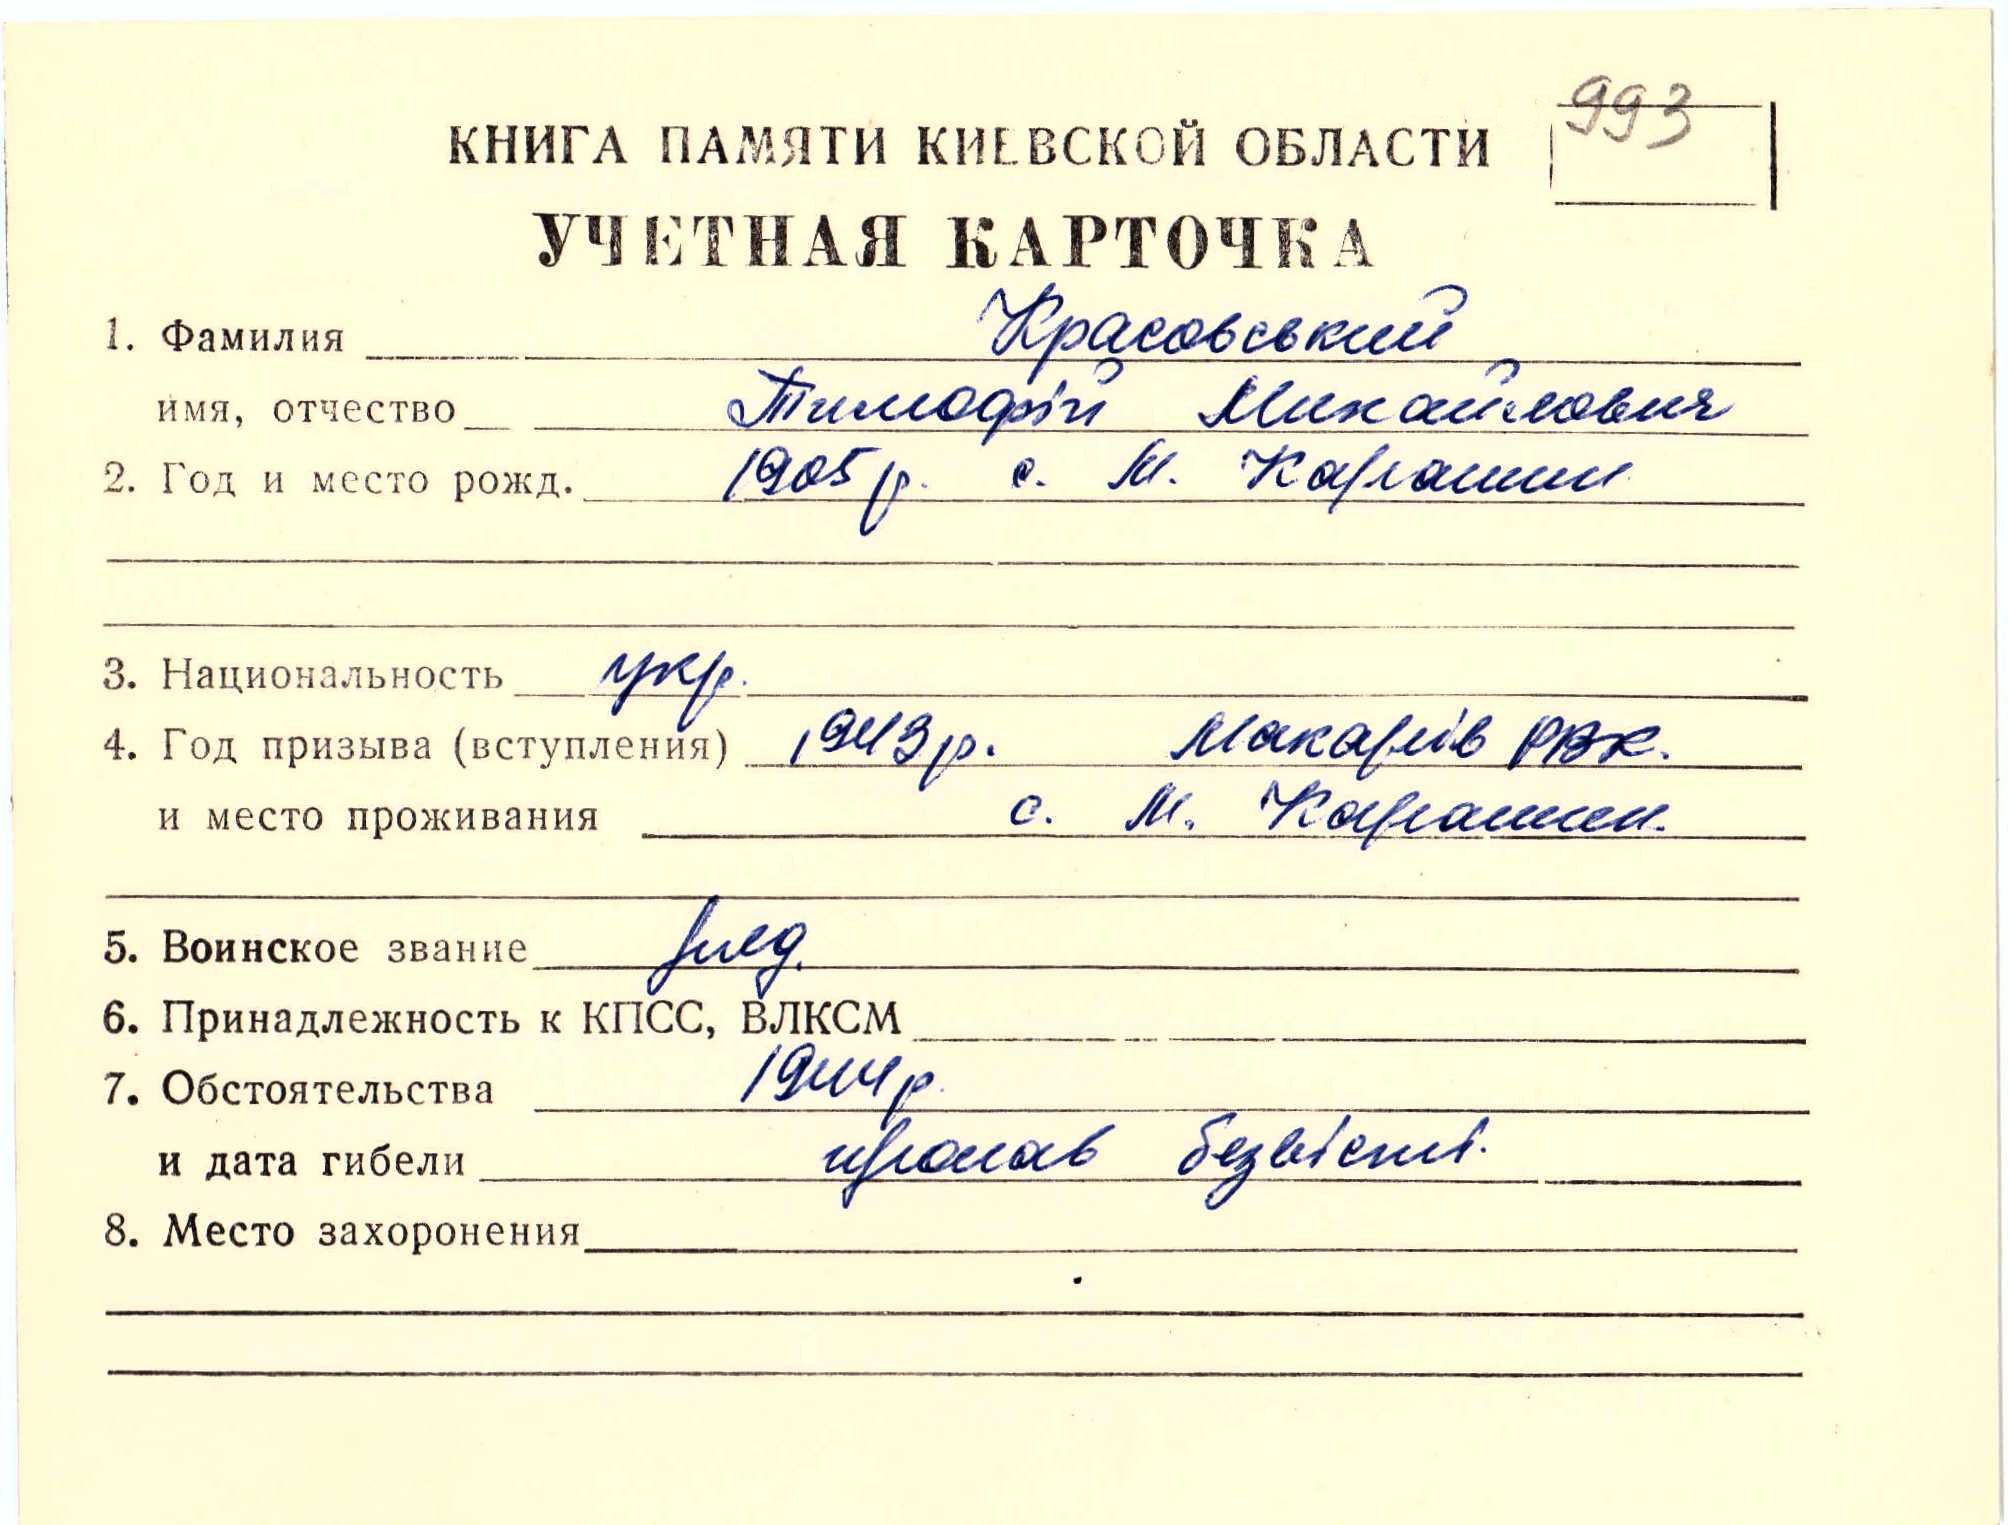 993
КНИГА ПАМЯТИ КИЕВСКОЙ ОБЛАСТИ
УЧЕТНАЯ КАРТОЧКА
1. Фамилия Красовський
имя, отчество Тимофій Михайлович
2. Год и место рожд. 1905 р. с. М. Карашин
3. Национальность укр.
4. Год призыва (вступления) 1943 р. Макарів РВК.
и место проживания с. М. Карашин.
5. Воинское звание ряд.
6. Принадлежность к КПСС, ВЛКСМ
7. Обстоятельства 1944 р.
и дата гибели пропав безвісті.
8. Место захоронения